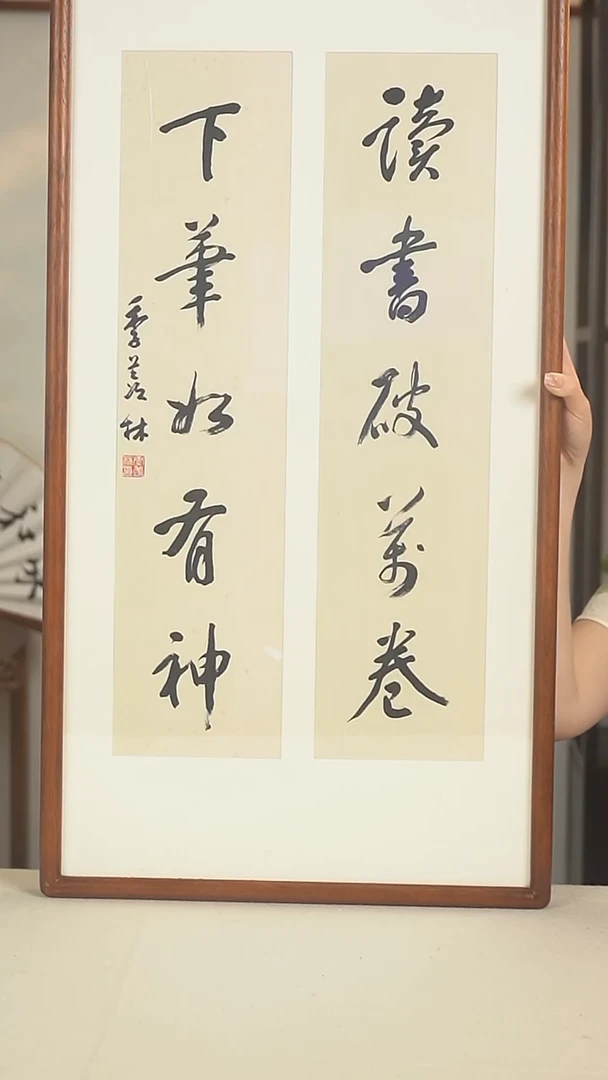 读书破萬卷
下筆如有神
季羡林